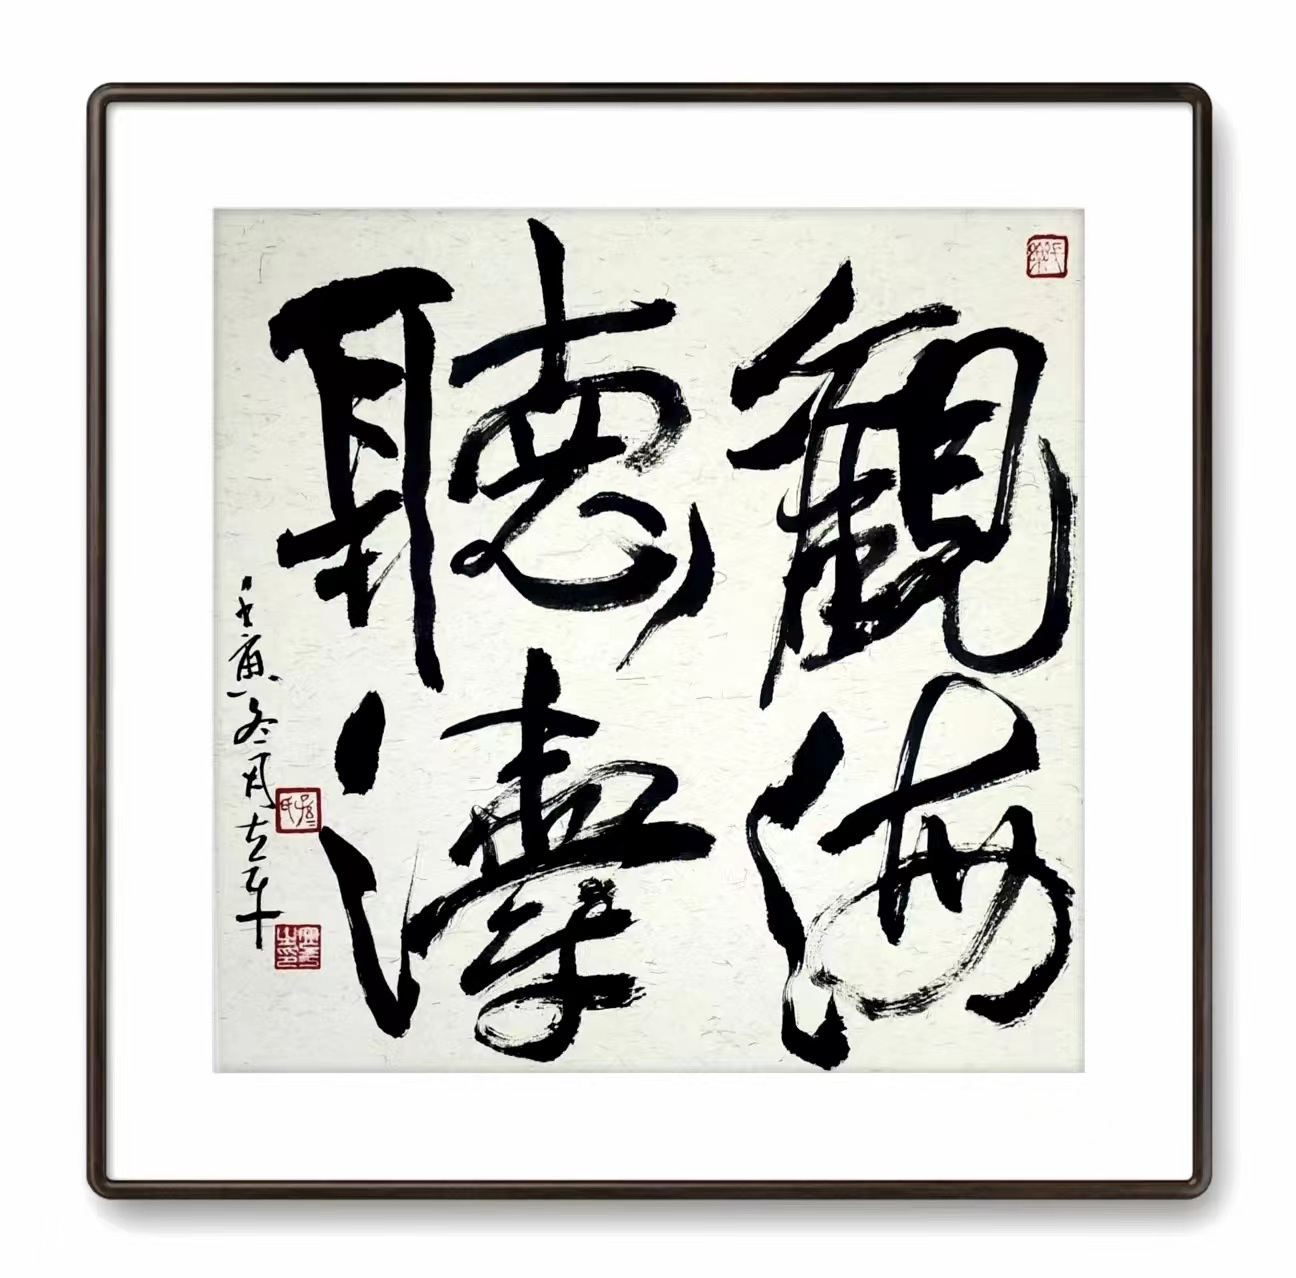 觀海
聽濤
壬寅冬月志平